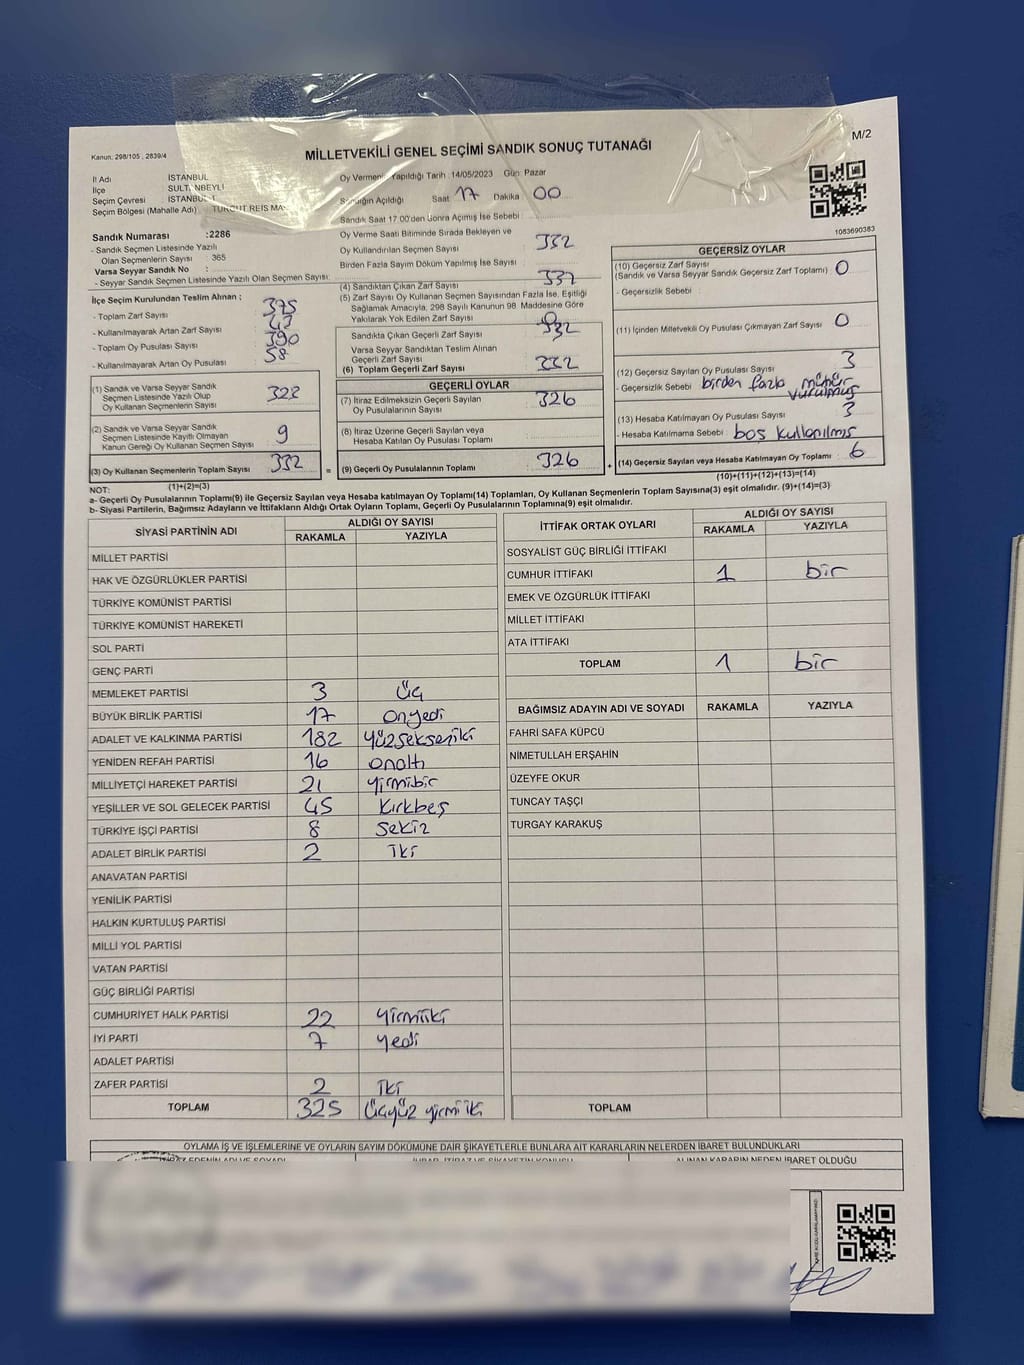 Kanun: 298/105 , 2839/4
MİLLETVEKİLİ GENEL SEÇİMİ SANDIK SONUÇ TUTANAĞI
M/2
İl Adı İSTANBUL
İlçe SULTANBEYLİ
Seçim Çevresi İSTANBUL
Seçim Bölgesi (Mahalle Adı) TURGUT REİS MA
Oy Vermenin Yapıldığı Tarih :14/05/2023 Gün: Pazar
Sandığın Açıldığı Saat 17 Dakika 00
Sandık Saat 17.00'den Sonra Açılmış İse Sebebi
1083690383
Sandık Numarası :2286
- Sandık Seçmen Listesinde Yazılı
Olan Seçmenlerin Sayısı : 365
Varsa Seyyar Sandık No :
- Seyyar Seçmen Listesinde Yazılı Olan Seçmen Sayısı:
Oy Verme Saati Bitiminde Sırada Bekleyen ve
Oy Kullandırılan Seçmen Sayısı 332
Birden Fazla Sayım Döküm Yapılmış İse Sayısı
İlçe Seçim Kurulundan Teslim Alınan ;
- Toplam Zarf Sayısı 375
- Kullanılmayarak Artan Zarf Sayısı
- Toplam Oy Pusulası Sayısı 390
- Kullanılmayarak Artan Oy Pusulası 58
(4) Sandıktan Çıkan Zarf Sayısı 332
(5) Zarf Sayısı Oy Kullanan Seçmen Sayısından Fazla İse, Eşitliği
Sağlamak Amacıyla, 298 Sayılı Kanunun 98. Maddesine Göre
Yakılarak Yok Edilen Zarf Sayısı
Sandıkta Çıkan Geçerli Zarf Sayısı 332
Varsa Seyyar Sandıktan Teslim Alınan
Geçerli Zarf Sayısı
(6) Toplam Geçerli Zarf Sayısı 332
(1) Sandık ve Varsa Seyyar Sandık
Seçmen Listesinde Yazılı Olup
Oy Kullanan Seçmenlerin Sayısı 323
(2) Sandık ve Varsa Seyyar Sandık
Seçmen Listesinde Kayıtlı Olmayan
Kanun Gereği Oy Kullanan Seçmen Sayısı 9
(3) Oy Kullanan Seçmenlerin Toplam Sayısı 332 =
(1)+(2)=(3)
GEÇERLİ OYLAR
(7) İtiraz Edilmeksizin Geçerli Sayılan
Oy Pusulalarının Sayısı 326
(8) İtiraz Üzerine Geçerli Sayılan veya
Hesaba Katılan Oy Pusulası Toplamı
(9) Geçerli Oy Pusulalarının Toplamı 326 +
GEÇERSİZ OYLAR
(10) Geçersiz Zarf Sayısı
(Sandık ve Varsa Seyyar Sandık Geçersiz Zarf Toplamı) 0
- Geçersizlik Sebebi :
(11) İçinden Milletvekili Oy Pusulası Çıkmayan Zarf Sayısı 0
(12) Geçersiz Sayılan Oy Pusulası Sayısı 3
- Geçersizlik Sebebi birden fazla mühür
vurulmuş
(13) Hesaba Katılmayan Oy Pusulası Sayısı 3
- Hesaba Katılmama Sebebi : boş kullanılmış
(14) Geçersiz Sayılan veya Hesaba Katılmayan Oy Toplamı 6
(10)+(11)+(12)+(13)=(14)
NOT:
a- Geçerli Oy Pusulalarının Toplamı(9) ile Geçersiz Sayılan veya Hesaba katılmayan Oy Toplamı(14) Toplamları, Oy Kullanan Seçmenlerin Toplam Sayısına(3) eşit olmalıdır. (9)+(14)=(3)
b- Siyasi Partilerin, Bağımsız Adayların ve İttifakların Aldığı Ortak Oyların Toplamı, Geçerli Oy Pusulalarının Toplamına(9) eşit olmalıdır.
SİYASİ PARTİNİN ADI
ALDIĞI OY SAYISI
RAKAMLA YAZIYLA
MİLLET PARTİSİ
HAK VE ÖZGÜRLÜKLER PARTİSİ
TÜRKİYE KOMÜNİST PARTİSİ
TÜRKİYE KOMÜNİST HAREKETİ
SOL PARTİ
GENÇ PARTİ
MEMLEKET PARTİSİ 3 üç
BÜYÜK BİRLİK PARTİSİ 17 onyedi
ADALET VE KALKINMA PARTİSİ 182 yüzsekseniki
YENİDEN REFAH PARTİSİ 16 onaltı
MİLLİYETÇİ HAREKET PARTİSİ 21 yirmibir
YEŞİLLER VE SOL GELECEK PARTİSİ 45 kırkbeş
TÜRKİYE İŞÇİ PARTİSİ 8 sekiz
ADALET BİRLİK PARTİSİ 2 iki
ANAVATAN PARTİSİ
YENİLİK PARTİSİ
HALKIN KURTULUŞ PARTİSİ
MİLLİ YOL PARTİSİ
VATAN PARTİSİ
GÜÇ BİRLİĞİ PARTİSİ
CUMHURİYET HALK PARTİSİ 22 yirmiiki
İYİ PARTİ 7 yedi
ADALET PARTİSİ
ZAFER PARTİSİ 2 iki
TOPLAM 325 üçyüz yirmi iki
İTTİFAK ORTAK OYLARI
ALDIĞI OY SAYISI
RAKAMLA YAZIYLA
SOSYALİST GÜÇ BİRLİĞİ İTTİFAKI
CUMHUR İTTİFAKI 1 bir
EMEK VE ÖZGÜRLÜK İTTİFAKI
MİLLET İTTİFAKI
ATA İTTİFAKI
TOPLAM 1 bir
BAĞIMSIZ ADAYIN ADI VE SOYADI RAKAMLA YAZIYLA
FAHRİ SAFA KÜPCÜ
NİMETULLAH ERŞAHİN
ÜZEYFE OKUR
TUNCAY TAŞÇI
TURGAY KARAKUŞ
TOPLAM
OYLAMA İŞ VE İŞLEMLERİNE VE OYLARIN SAYIM DÖKÜMÜNE DAİR ŞİKAYETLERLE BUNLARA AİT KARARLARIN NELERDEN İBARET BULUNDUKLARI
İTİRAZ EDENİN ADI VE SOYADI İHBAR, İTİRAZ VE ŞİKAYETİN KONUSU ALINAN KARARIN NEDEN İBARET OLDUĞU